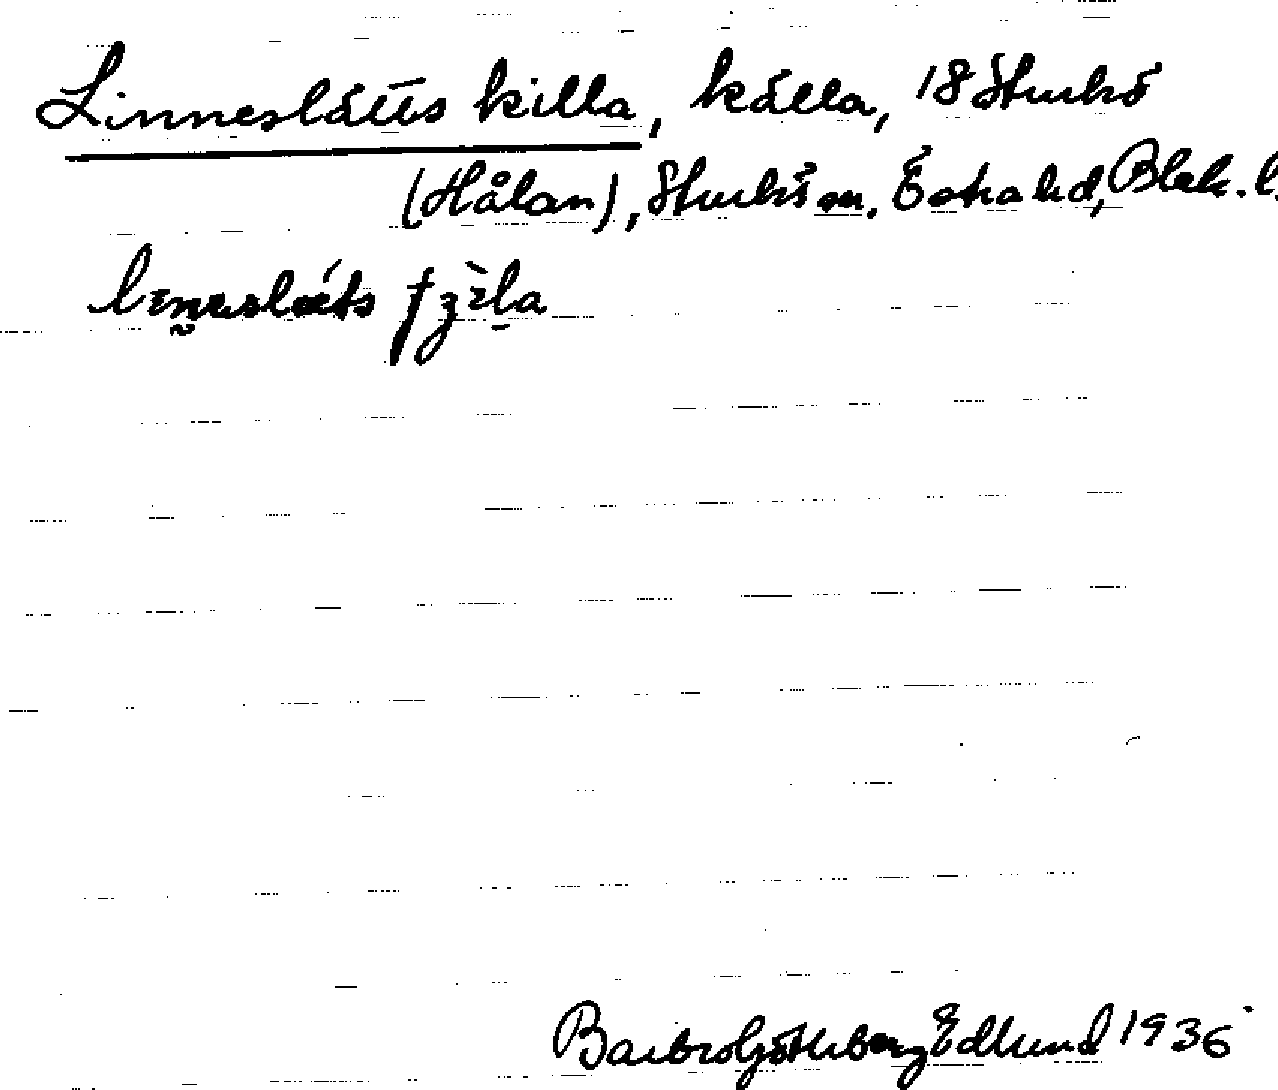 Linneslätts killa, källa, 18 Sturkö
(Hålan), Sturkö sn, Östra hd, Blek. l.
Barbro Göthberg Edlund 1936